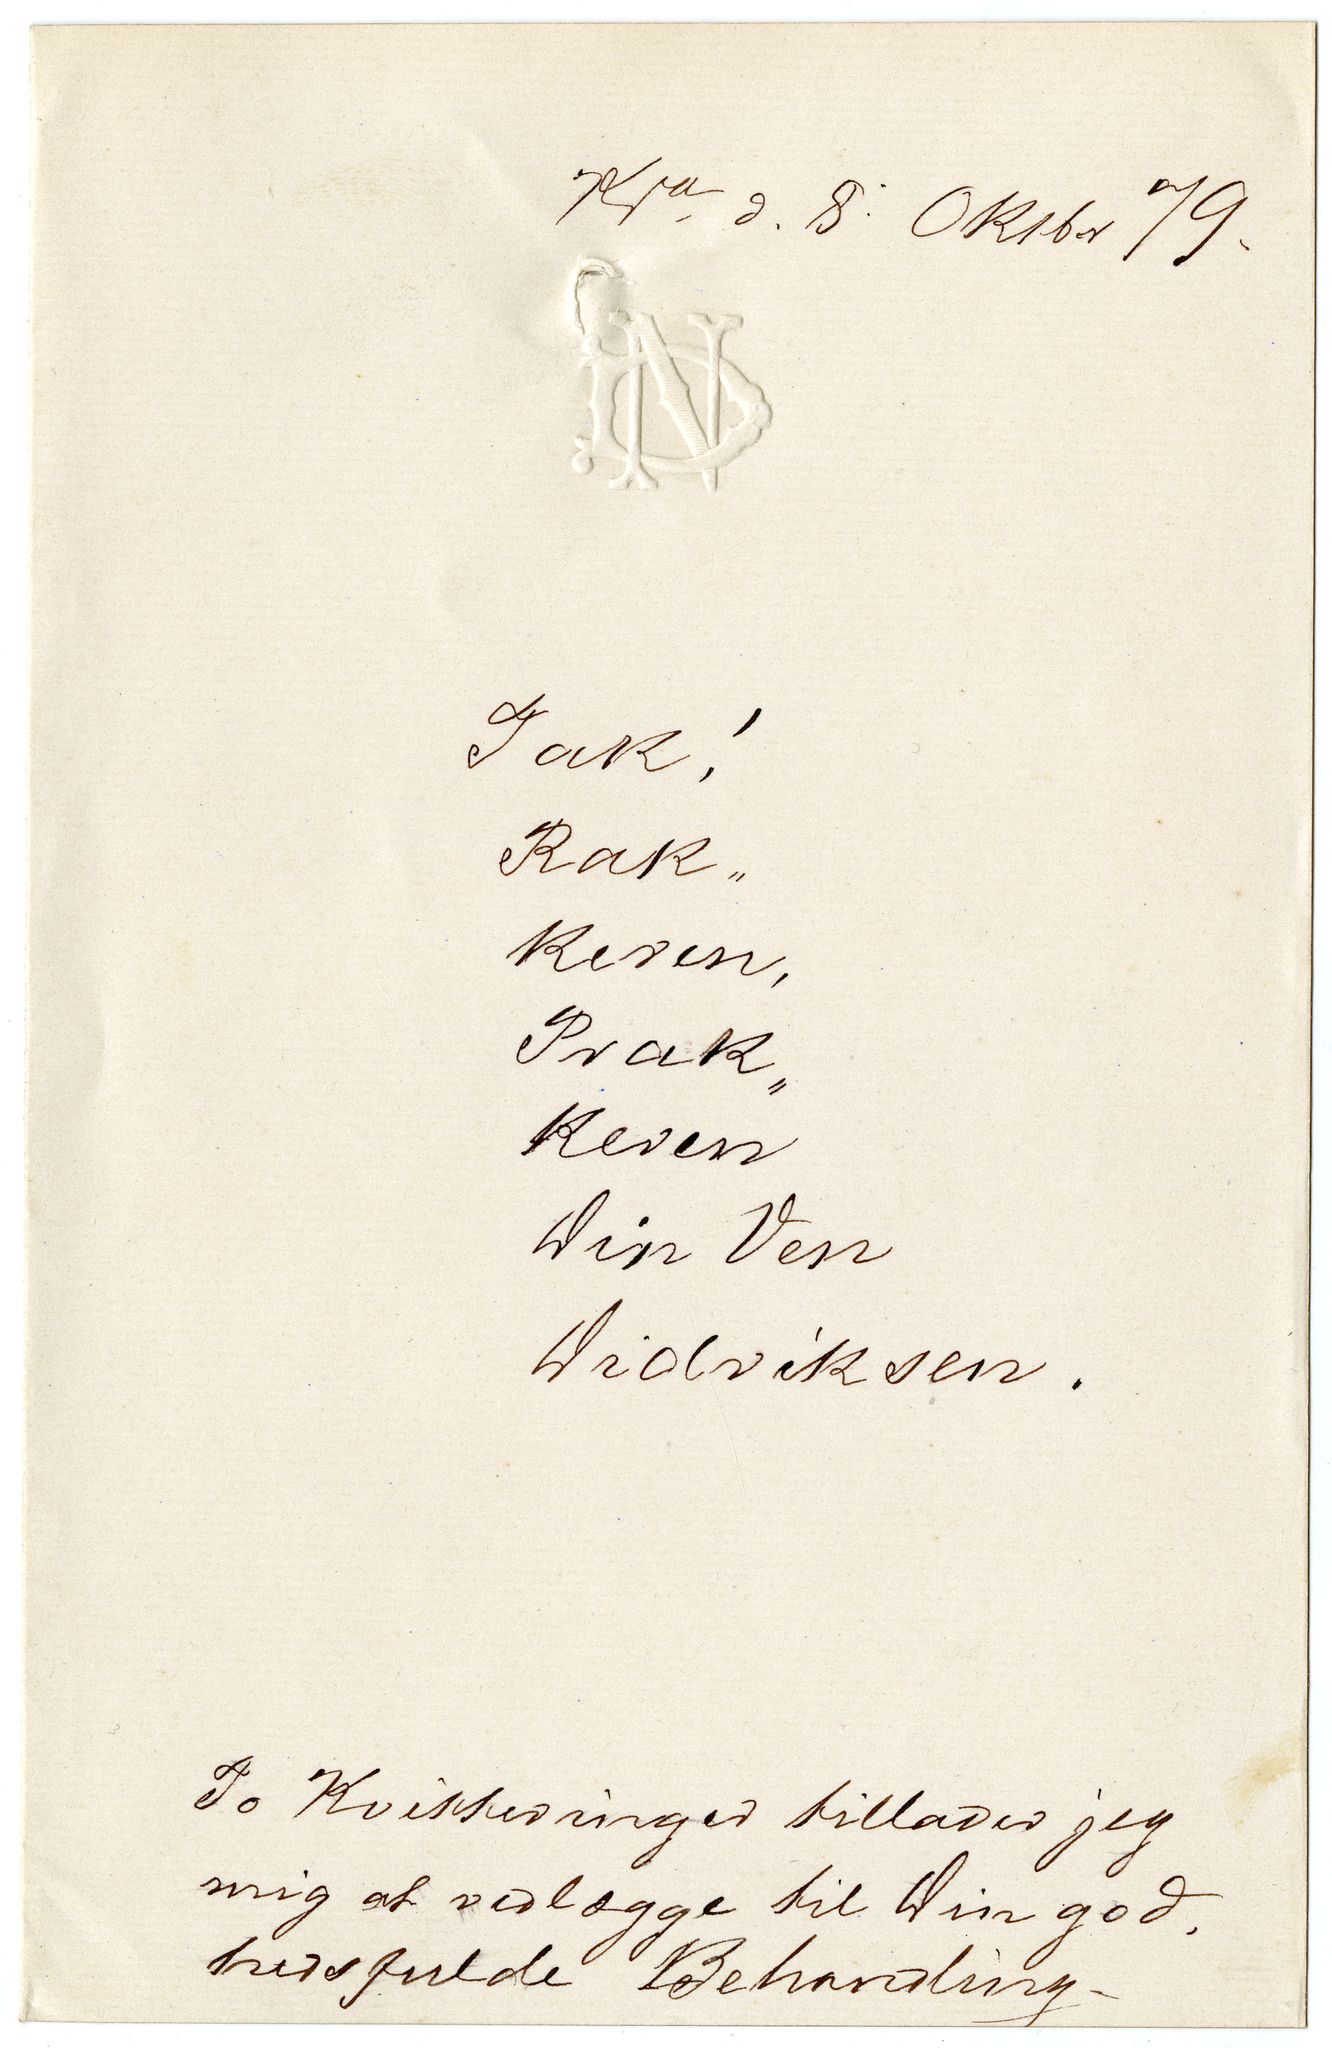 Kra d. 8. Oktbr 79.
DN
Tak!
Rak„
keren,
Prak„
keren
Din Ven
Didriksen.
To Kvitteringer tillader jeg
mig at vedlægge til Din god,
hedsfulde Behandling.